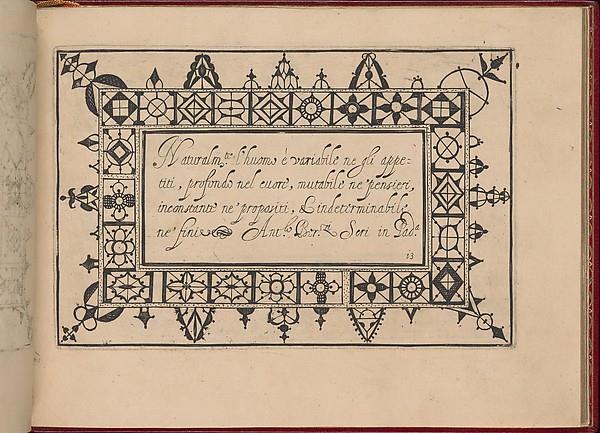 Naturalm.te l'huomo è variabile ne gli appe-
titi, profondo nel cuore, mutabile ne pensieri,
inconstante ne propositi, & indeterminabile
ne fini Ant.o Ber.ti Scri in Pad.a
13